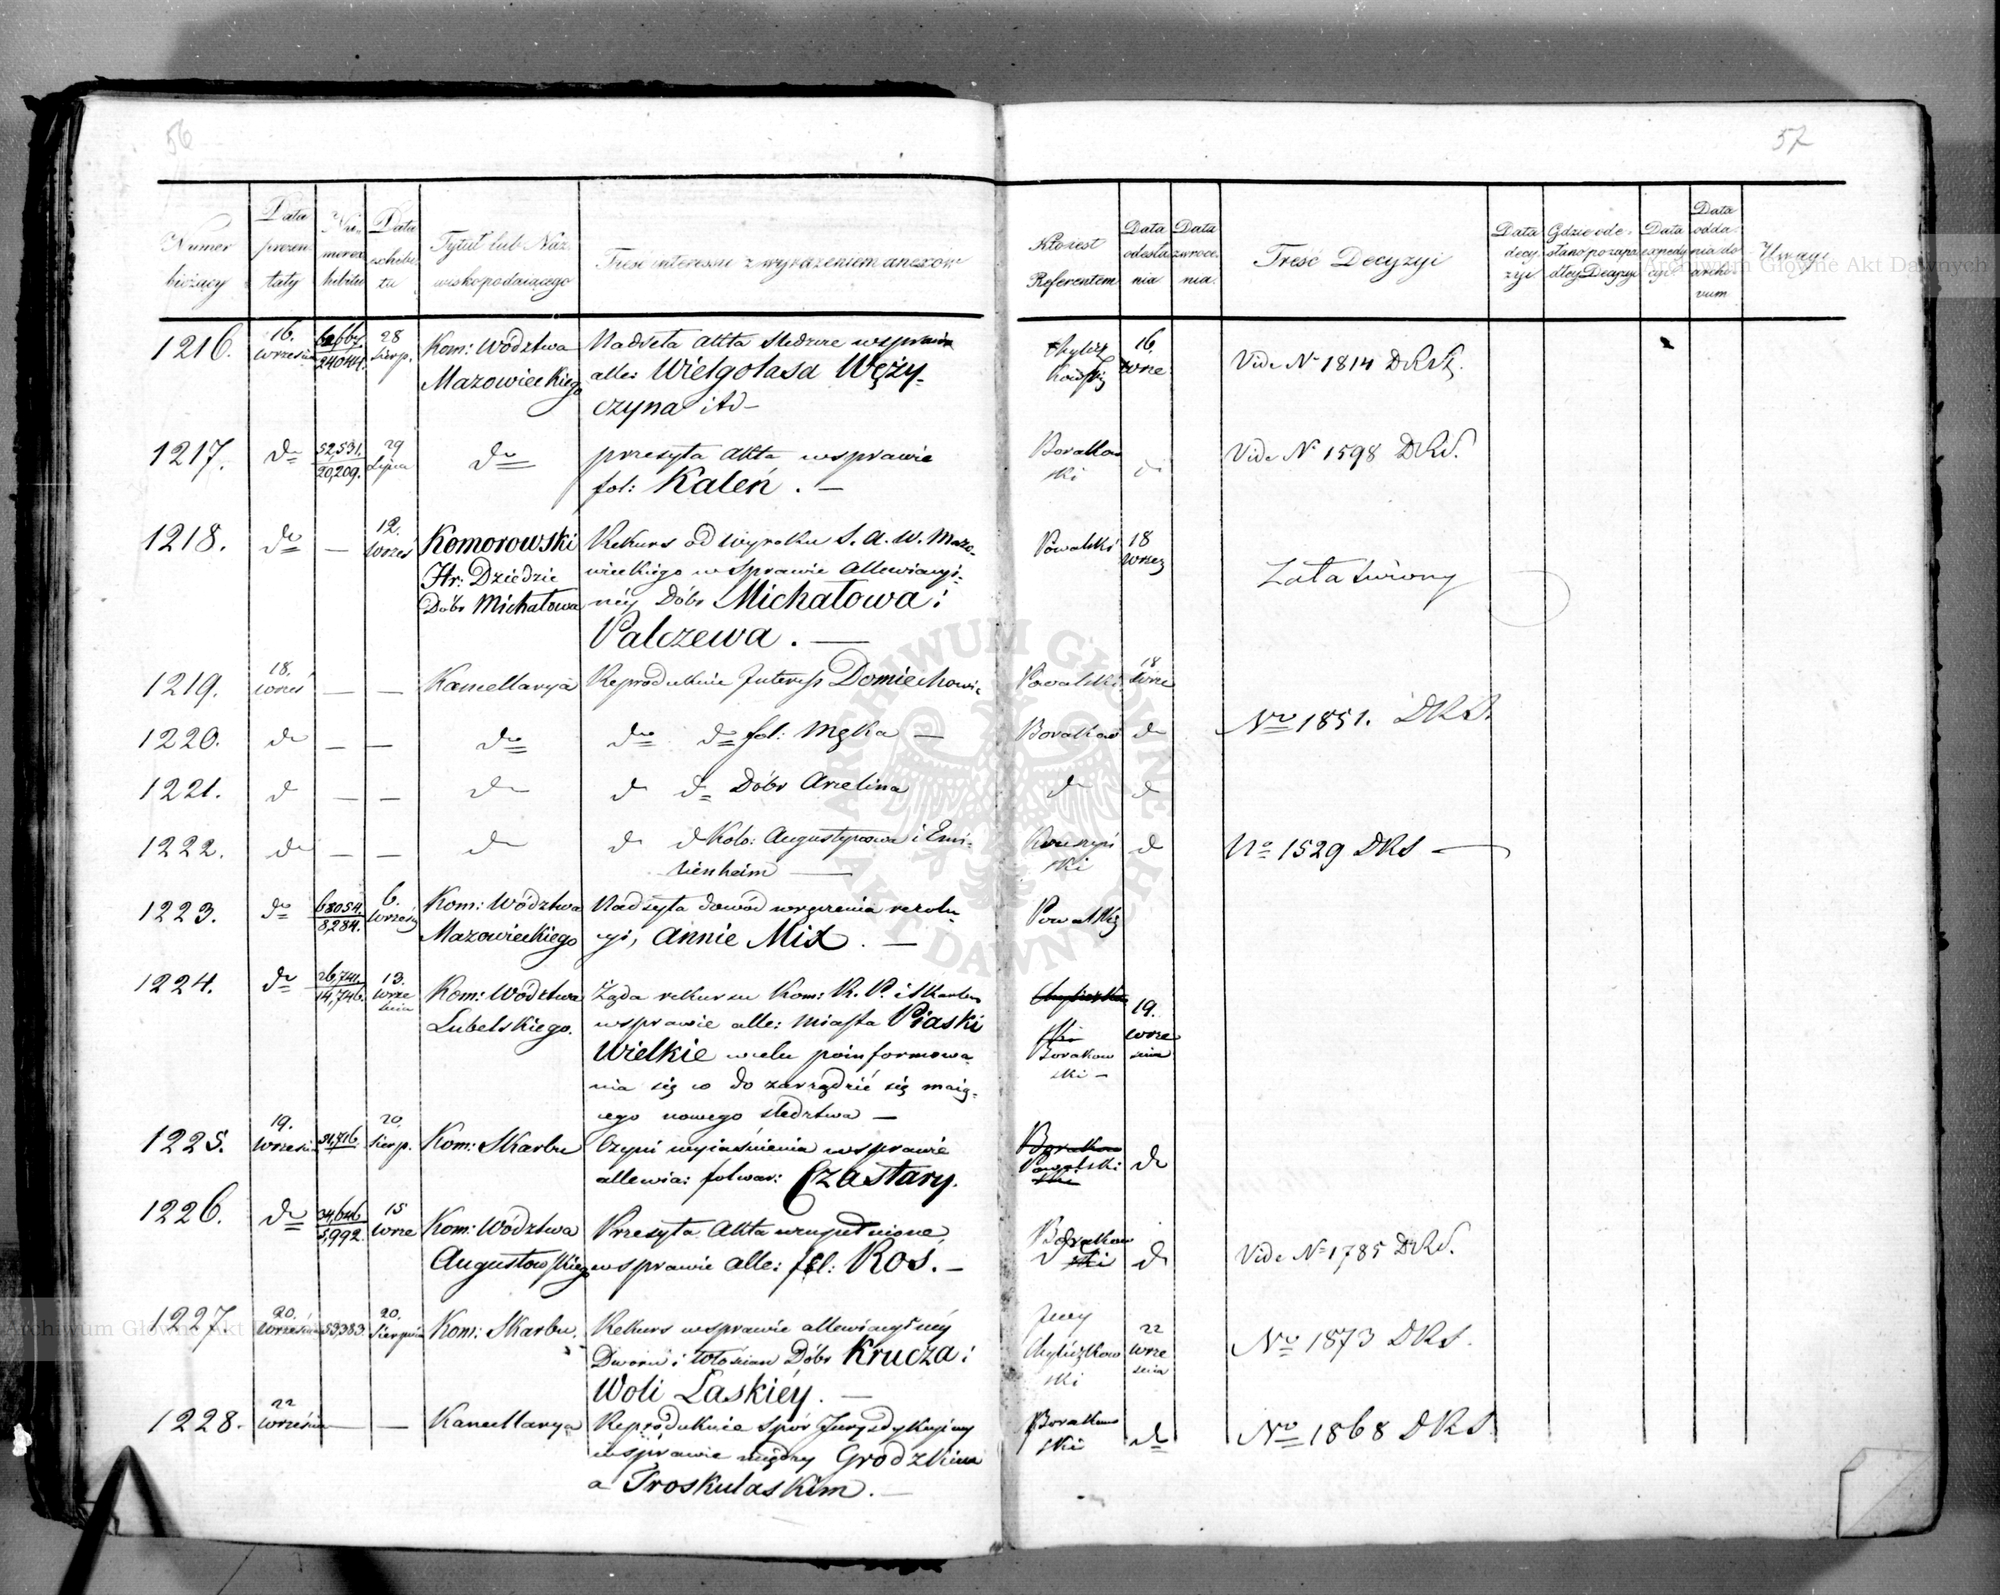 56
57
Numer bieżący
Data prezentaty
Numer exhibitu
Data exhibitu
Tytuł lub Nazwisko podaiącego
Treść interessu z wyrażeniem anexow
Kto iest Referentem
Data odesłania
Data zwrocenia.
Treść Decyzyi
Data decyzyi
Gdzie odesłano po zapadłey Decyzyi
Data expedycyi
Data oddania do archivum
Uwagi
1216. 16. Września 24044. 28 Sierp. Kom: Wództwa Mazowieckiego
Nadseła Akta śledcze wsprawie
alle: Wielgolasa Węży-
czyna itd—
16. Wrze Vide No 1814 DRS.
1217. do 52,531. 20,209. 29 Lipca do
przesyła Akta wsprawie
fol: Kaleń. —
Borakowski do Vide No 1598 DRS.
1218. do — 12. Wrześ Komorowski
Hr: Dziedzic
Dóbr Michałowa
Rekurs od wyroku S. A. W. Mazo-
wieckiego w Sprawie Allewiacyi-
néy Dóbr Michałowa i
Palczewa. —
Powalski 18 Wrześ Załatwiony
1219. 18. Wześ — — Kancellarya Reprodukuie Interess Domiechowic
Powalski 18 Wrze
1220. do — — do do do fol: Męka — Borakow do No 1851. DRS.
1221. do — — do do do Dóbr Arcelina do do
1222. do — — do do do Kolo: Augustynowa i Emi-
lienheim —
do No 1529 DRS —
1223. do 68054. 8,284. 6. Wrześ Kom: Wództwa Mazowieckiego
Nadsyła dowód wręczenia rezolu-
cyi, Annie Mix. —
Powalski
1224. do 26,741. 14,746. 13. Września Kom: Wództwa Lubelskiego.
Żąda rekursu Kom: R. P. i Skarbu
wsprawie alle: Miasta Piaski
Wielkie wcelu poinformowa-
nia się co do zarządzić się maią-
cego nowego śledztwa —
Borakowski — 19. Września
1225. 19. Września 34,716. 20. Sierp. Kom: Skarbu
Czyni wyiaśnienia wsprawie
allewia: folwar: Czastary.
Powalski do
1226. do 34,646 5,992. 15 Wrze Kom: Wództwa Augustowskiego
Przesyła Akta uzupełnione,
wsprawie Alle: fol: Koś. —
Borakowski do Vide No 1785 DRS.
1227. 20. Września 53383. 20. Sierpnia Kom: Skarbu.
Rekurs wsprawie allewiacyinéy
Dworu i Włościan Dóbr Krucza i
Woli Łaskiéy. —
Chyliczkowski 22 Września No 1873 DRS.
1228. 22 Września — — Kancellarya
Reprodukuie Spór Jurysdykcyiny
wsprawie między Grodzkim
a Troskulaskim. —
Borakowski do No 1868 DRS.
Archiwum Główne Akt Dawnych
ARCHIWUM GŁÓWNE AKT DAWNYCH
Archiwum Główne Akt Dawnych